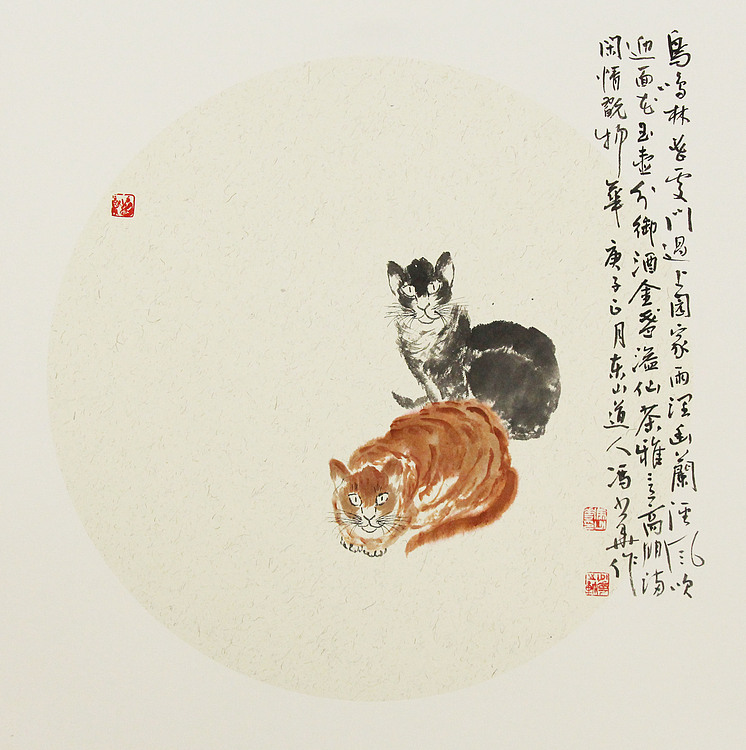 鳥鳴林 雯門過上園家雨潤幽蘭徑風吹
迎面花玉壺分御酒金盞溢仙茶雅 高朋满
閑情翫物華 庚子正月东山道人冯 作